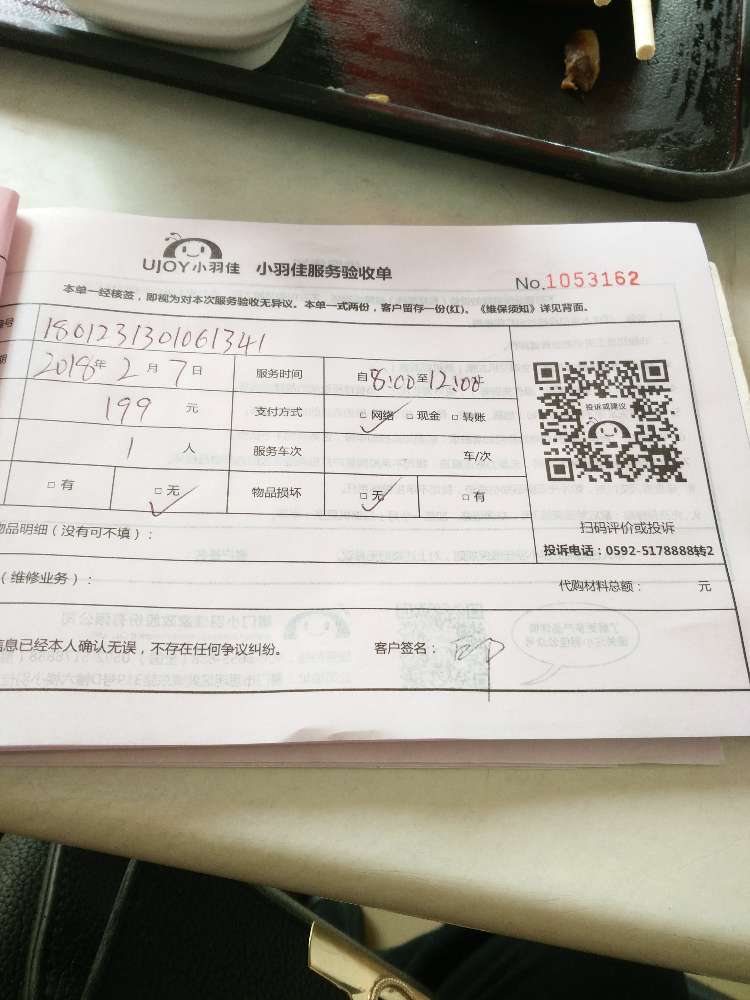 UJOY小羽佳 小羽佳服务验收单
No.1053162
本单一经核签，即视为对本次服务验收无异议。本单一式两份，客户留存一份(红)。《维保须知》详见背面。
号 1801231301061341
期 2018年 2月 7日 服务时间 自8:00至12:00
199 元 支付方式 □网络 □现金 □转账
1 人 服务车次 车/次
□有 □无 物品损坏 □无 □有
投诉或建议
扫码评价或投诉
投诉电话：0592-5178888转2
物品明细（没有可不填）：
（维修业务）： 代购材料总额： 元
信息已经本人确认无误，不存在任何争议纠纷。 客户签名：